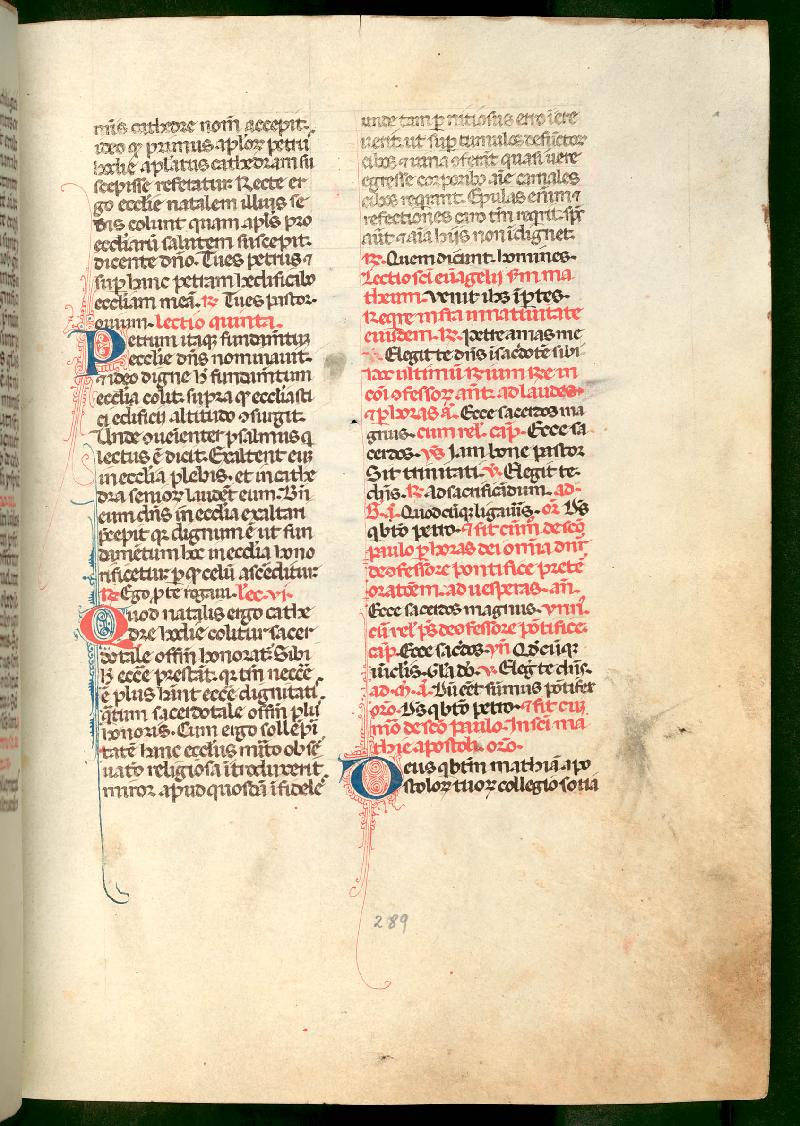 mīs cathedre nom̄ accepit.
ideo ꝙ primus apl̄oꝝ petrꝰ
hodie apl̄atus cathedram su
scepisse referatur. Recte er
go eccl̄ie natalem illius se
dis colunt quam apl̄s pro
eccl̄iarū salutem suscepit.
dicente dn̄o. Tu es petrus ⁊
suꝑ hanc petram hedificabo
eccl̄iam meā. ℟ Tu es pastor
ouium. lectio quinta.
Petrum itaqꝫ fundam̄tum
eccl̄ie dn̄s nominauit.
⁊ ideo digne h̄ fundam̄tum
eccl̄ia colit. supra qͥ eccl̄iasti
ci edificii altitudo ꝯsurgit.
Unde ꝯueienter psalmus q
lectus ē dicit. Exaltent eū
in eccl̄ia plebis. et in cathe
dra senioꝝ laudēt eum. Bn̄
eum dn̄s in eccl̄ia exaltari
p̄cepit qꝛ dignum ē ut fun
damētum hoc in eccl̄ia hono
rificetur ꝑ qͥ celū ascēditur.
℟ Ego ꝓ te rogaui. Lec. vi.
Quod natalis ergo cathe
dre hodie colitur sacer
dotale offm̄ honorat. Sibi
h̄ ecc̄e prestāt. qꝛ tm̄ necc̄e
ē plus hn̄t ecc̄e dignitati
q̄tum sacerdotale offm̄ plꝰ
honoris. Cum ergo sollēpi
tatē hanc eccl̄ius m̄ito obse
uatō religiosa ītroduxerit
miror apud quosdā īfidele
unde tam ꝑnitiosus error īcre
uerit. ut suꝑ tumulos defūctoꝝ
cibos ⁊ uina ꝯferāt quasi uere
egresse corporibꝰ aīe carnales
cibos reqrant. Epulas enīm ⁊
refectiones caro tm̄ reqrit. sp̄s
aūt ⁊ aīa hijs non īdiget.
℟. Quem dicunt homines.
Lectio sc̄i euāgelij s̄m ma
theum. Uenit ih̄s ī ꝑtes.
Reqre infra in natiuitate
eiusdem. ℟. Petre amas me
℣. Elegit te dn̄s ī sacdotē sibi
℟ Ecce sacerdos ma
gnus. cum rel. cap̄. Ecce sa
cerdos. ymꝰ Iam bone pastor
Sit trinitati. ℣. Elegit te
dn̄s. ℟. ad sacrificādum. ad
B. ā. Quodcūqꝫ ligaūis. or̄. Ds
qͥ bt̄o petro. ⁊ fit cōm̄. de sc̄o
paulo ꝑ horas dei omīa dnr̄
de ꝯfessore pontifice preter
oratōem. ad uesperas. an̄.
Ecce sacerdos magnus. ymn̄.
cū rel. ps̄. de ꝯfessore pōtifice.
cap̄. Ecce sacdos. ym̄. Qd̄cūqꝫ
uīclis. Gl̄a dō. ℣. Eleg te dn̄s.
ad. ꝳ. ā. Dū eēt sūmus pōtifex
or̄o. Ds qͥ bt̄o petro. ⁊ fit cō
mō de sc̄o paulo. In sc̄i ma
thie apostoli. or̄o.
Deus qͥ btm̄ mathiā apo
stoloꝝ tuoꝝ collegio socia
289